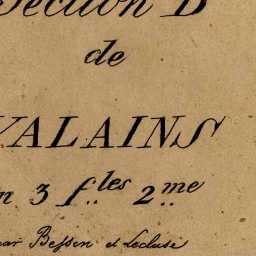 Section B
de
VALAINS
n 3 f.les 2.me
par Bessen et Lecluse